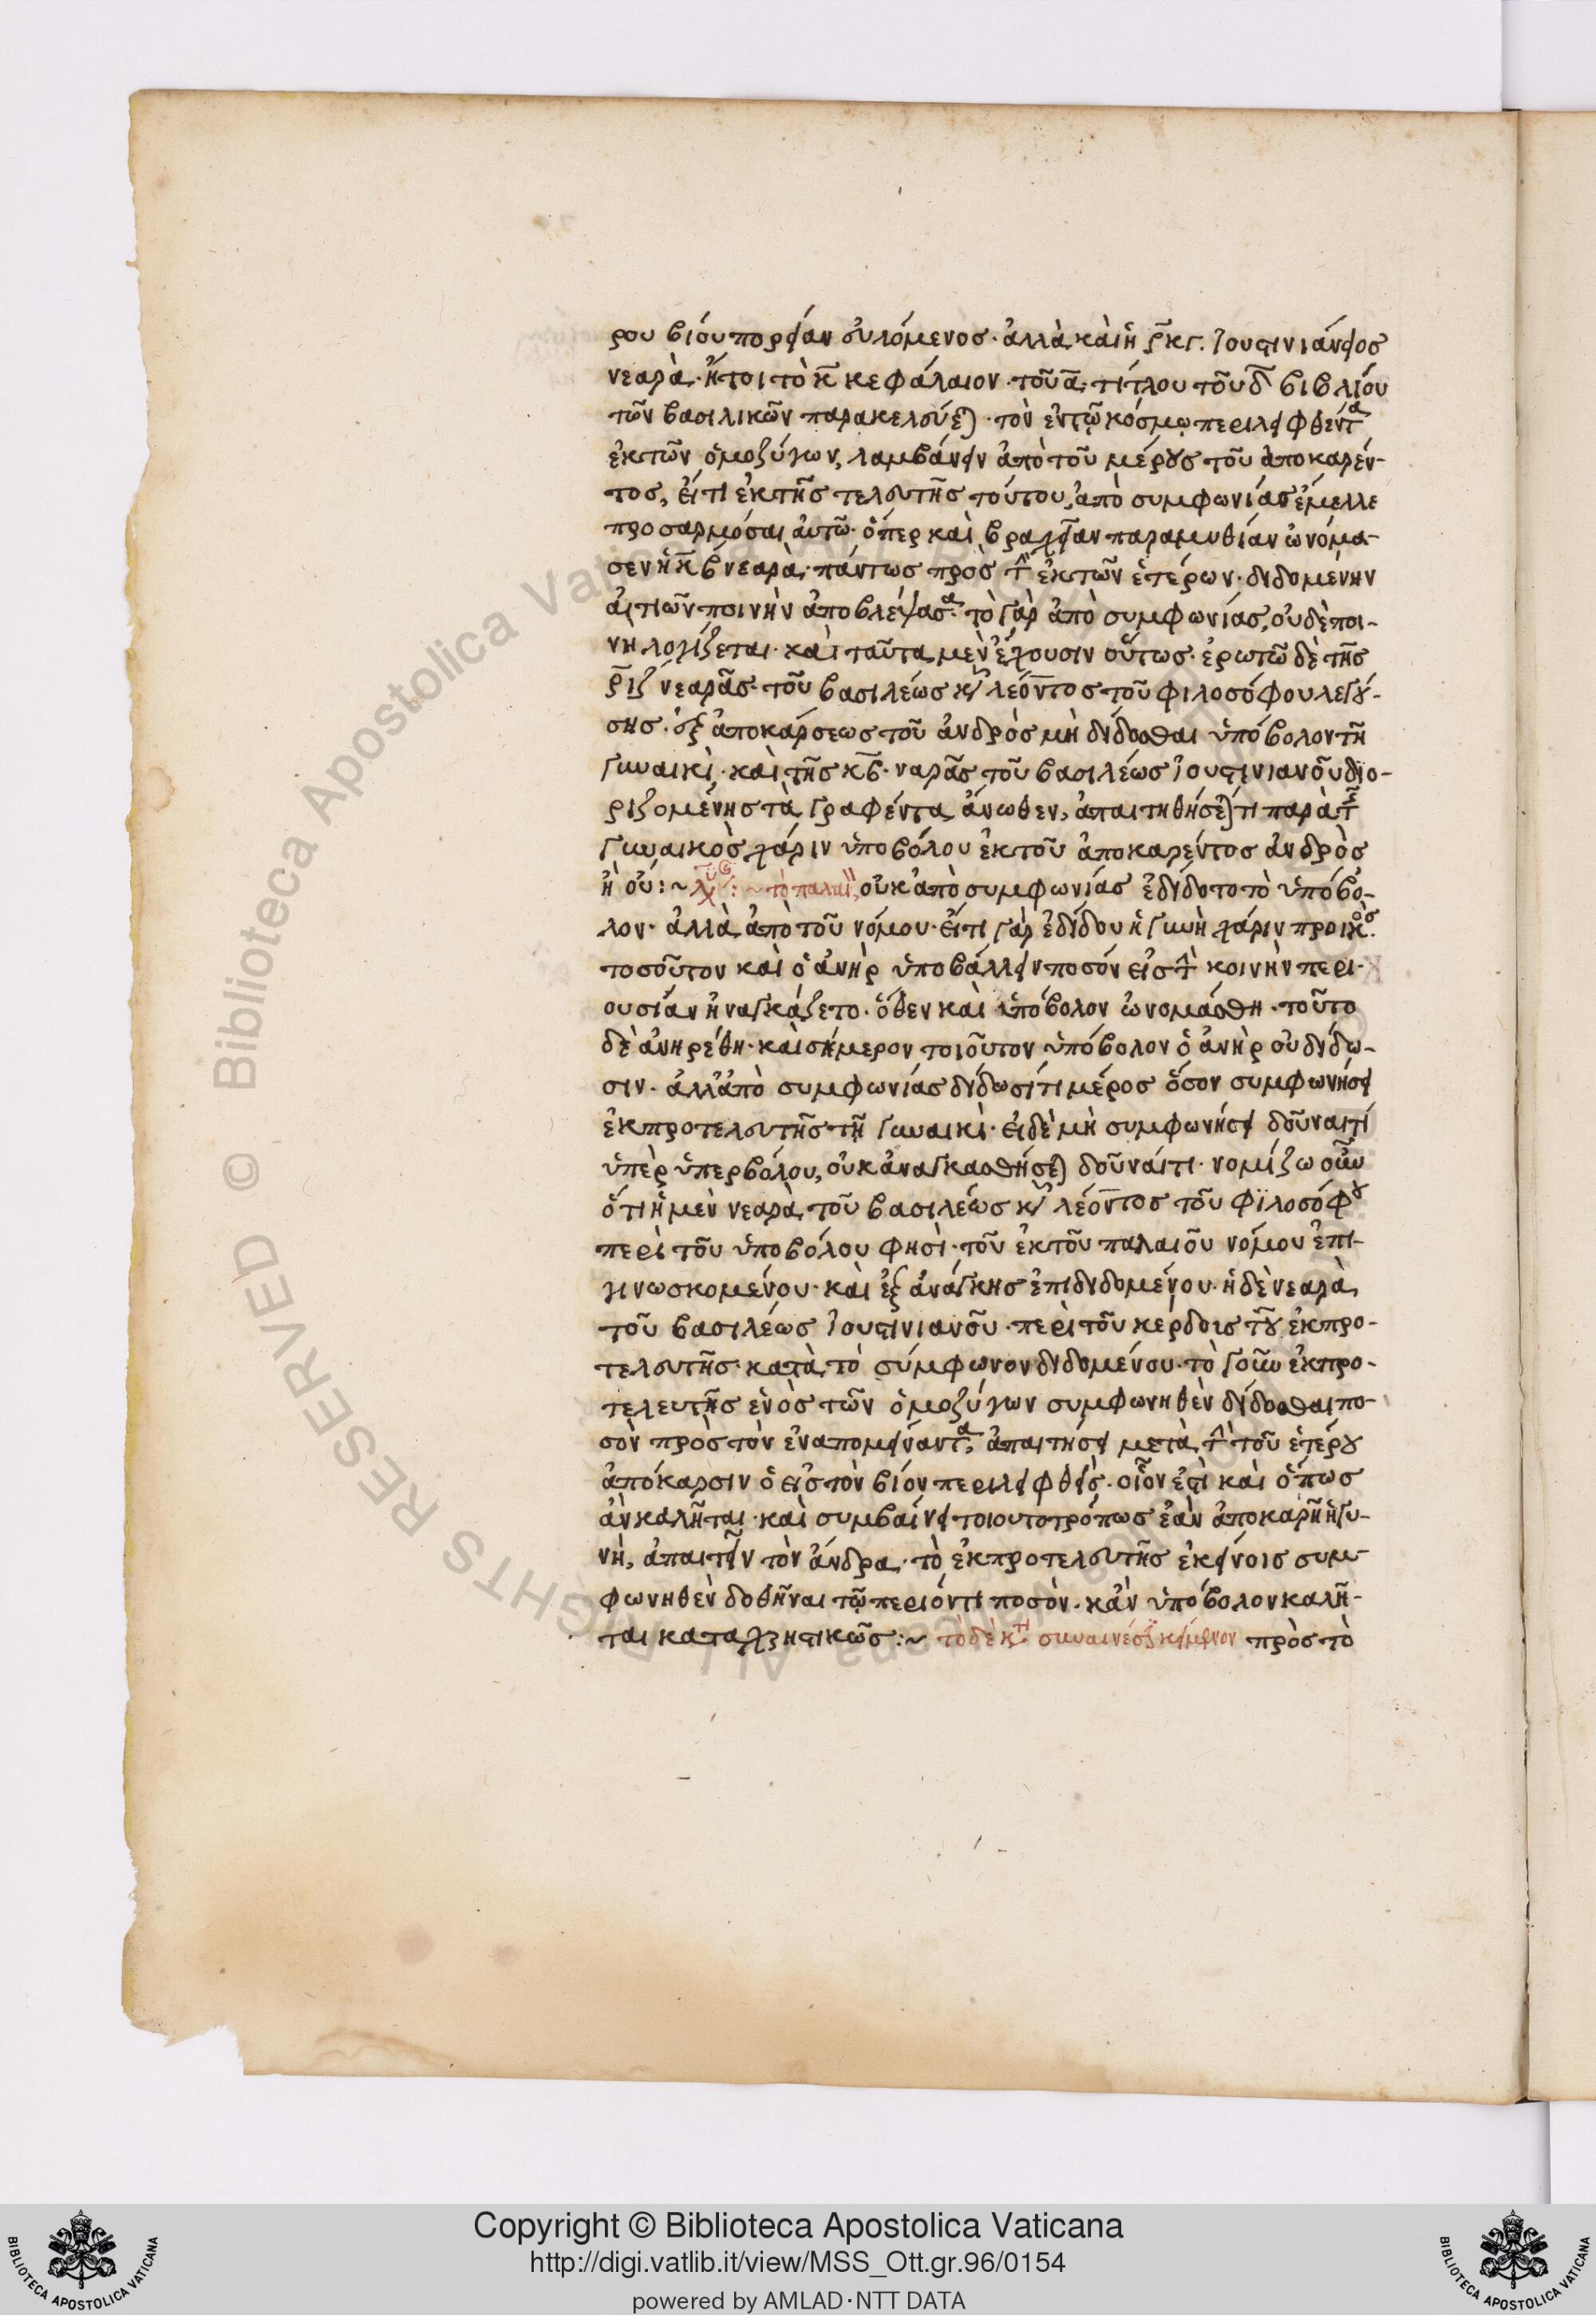 ρου βίου πορείαν στελόμενος· ἀλλὰ καὶ ἡ ρκγ. Ἰουστινιάνειος
νεαρὰ· ἤτοι τὸ κ̅ κεφάλαιον· τοῦ α̅· τίτλου τοῦ δ̅ βιβλίου
τῶν βασιλικῶν παρακελεύεται· τὸν ἐν τῷ κόσμῳ περιλειφθέντα
ἐκ τῶν ὁμοζύγων, λαμβάνειν ἀπὸ τοῦ μέρους τοῦ ἀποκαρέν-
τος, εἴ τι ἐκ τῆς τελευτῆς τούτου, ἀπὸ συμφωνίας ἔμελλε
προσαρμόσαι αὐτῷ· ὅπερ καὶ βραχεῖαν παραμυθίαν ὠνόμα-
σεν ἡ κβ νεαρὰ· πάντως πρὸς τὴν ἐκ τῶν ἑτέρων· διδομένην
αἰτιῶν ποινὴν ἀποβλέψασα· τὸ γὰρ ἀπὸ συμφωνίας, οὐδὲ ποι-
νὴ λογίζεται· καὶ ταῦτα μὲν ἔχουσιν οὕτως· ἐρωτῶ δὲ τῆς
ριζ νεαρᾶς· τοῦ βασιλέως κυροῦ λέοντος τοῦ φιλοσόφου λεγού-
σης· ἐξ ἀποκάρσεως τοῦ ἀνδρὸς μὴ δίδοσθαι ὑπόβολον τῇ
γυναικὶ· καὶ τῆς κβ· ναρᾶς τοῦ βασιλέως Ἰουστινιανοῦ διο-
ριζομένης τὰ γραφέντα ἄνωθεν, ἀπαιτηθήσεταί τι παρὰ τῆς
γυναικὸς χάριν ὑποβόλου ἐκ τοῦ ἀποκαρέντος ἀνδρὸς
ἢ οὔ :~ λύσις :~ τὸ παλαιὸν, οὐκ ἀπὸ συμφωνίας ἐδίδοτο τὸ ὑπόβο-
λον· ἀλλὰ ἀπὸ τοῦ νόμου· εἴ τι γὰρ ἐδίδου ἡ γυνὴ χάριν προικός·
τοσοῦτον καὶ ὁ ἀνὴρ ὑποβάλλειν ποσόν εἰς τὴν κοινὴν περι-
ουσίαν ἠναγκάζετο· ὅθεν καὶ ὑπόβολον ὠνομάσθη· τοῦτο
δὲ ἀνηρέθη· καὶ σήμερον τοιοῦτον ὑπόβολον ὁ ἀνὴρ οὐ δίδω-
σιν· ἀλλ' ἀπὸ συμφωνίας δίδωσί τι μέρος ὅσον συμφωνήσει
ἐκ προτελευτῆς τῇ γυναικὶ· εἰ δὲ μὴ συμφωνήσει δοῦναί τί
ὑπὲρ ὑπερβόλου, οὐκ ἀναγκασθήσεται δοῦναί τι· νομίζω οὖν
ὅτι ἡ μὲν νεαρὰ τοῦ βασιλέως κυροῦ λέοντος τοῦ φιλοσόφου
περὶ τοῦ ὑποβόλου φησὶ· τοῦ ἐκ τοῦ παλαιοῦ νόμου ἐπι-
γινωσκομένου· καὶ ἐξ ἀνάγκης ἐπιδιδομένου· ἡ δὲ νεαρὰ
τοῦ βασιλέως Ἰουστινιανοῦ· περὶ τοῦ κέρδους τοῦ ἐκ προ-
τελευτῆς· κατὰ τὸ σύμφωνον διδομένου· τὸ γοῦν ἐκ προ-
τελευτῆς ἑνὸς τῶν ὁμοζύγων συμφωνηθὲν δίδοσθαι πο-
σὸν πρὸς τὸν ἐναπομείναντα, ἀπαιτήσει μετὰ τὴν τοῦ ἑτέρου
ἀπόκαρσιν ὁ εἰς τὸν βίον περιλειφθεὶς· οἷον ἐστὶ καὶ ὅπως
ἂν καλῆται· καὶ συμβαίνει τοιουτοτρόπως ἐὰν ἀποκαρῇ ἡ γυ-
νὴ, ἀπαιτεῖν τὸν ἄνδρα· τὸ ἐκ προτελευτῆς ἐκείνοις συμ-
φωνηθὲν δοθῆναι τῷ περιόντι ποσὸν· κἂν ὑπόβολον καλῆ-
ται καταχρηστικῶς :~ τὸ δὲ κτι συναινέσει κείμενον πρὸς τὸ
Copyright © Biblioteca Apostolica Vaticana
http://digi.vatlib.it/view/MSS_Ott.gr.96/0154
powered by AMLAD·NTT DATA